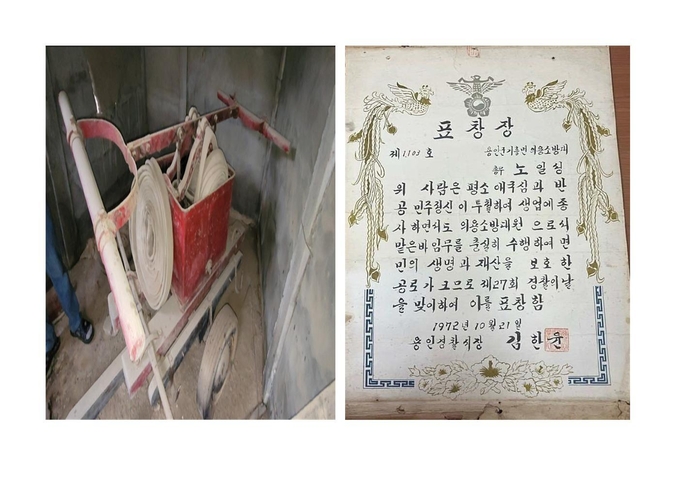 표창장
제1103호
용인군지흥면 의용소방대
노일성
위 사람은 평소 애국심과 반
공 민주정신이 투철하여 생업에 종
사하면서도 의용소방대원 으로서
맡은바 임무를 충실히 수행하여 면
민의 생명과 재산을 보호한
공로가 크므로 제27회 경찰의날
을 맞이하여 이를 표창함
1972년 10월 21일
용인경찰서장 김한윤